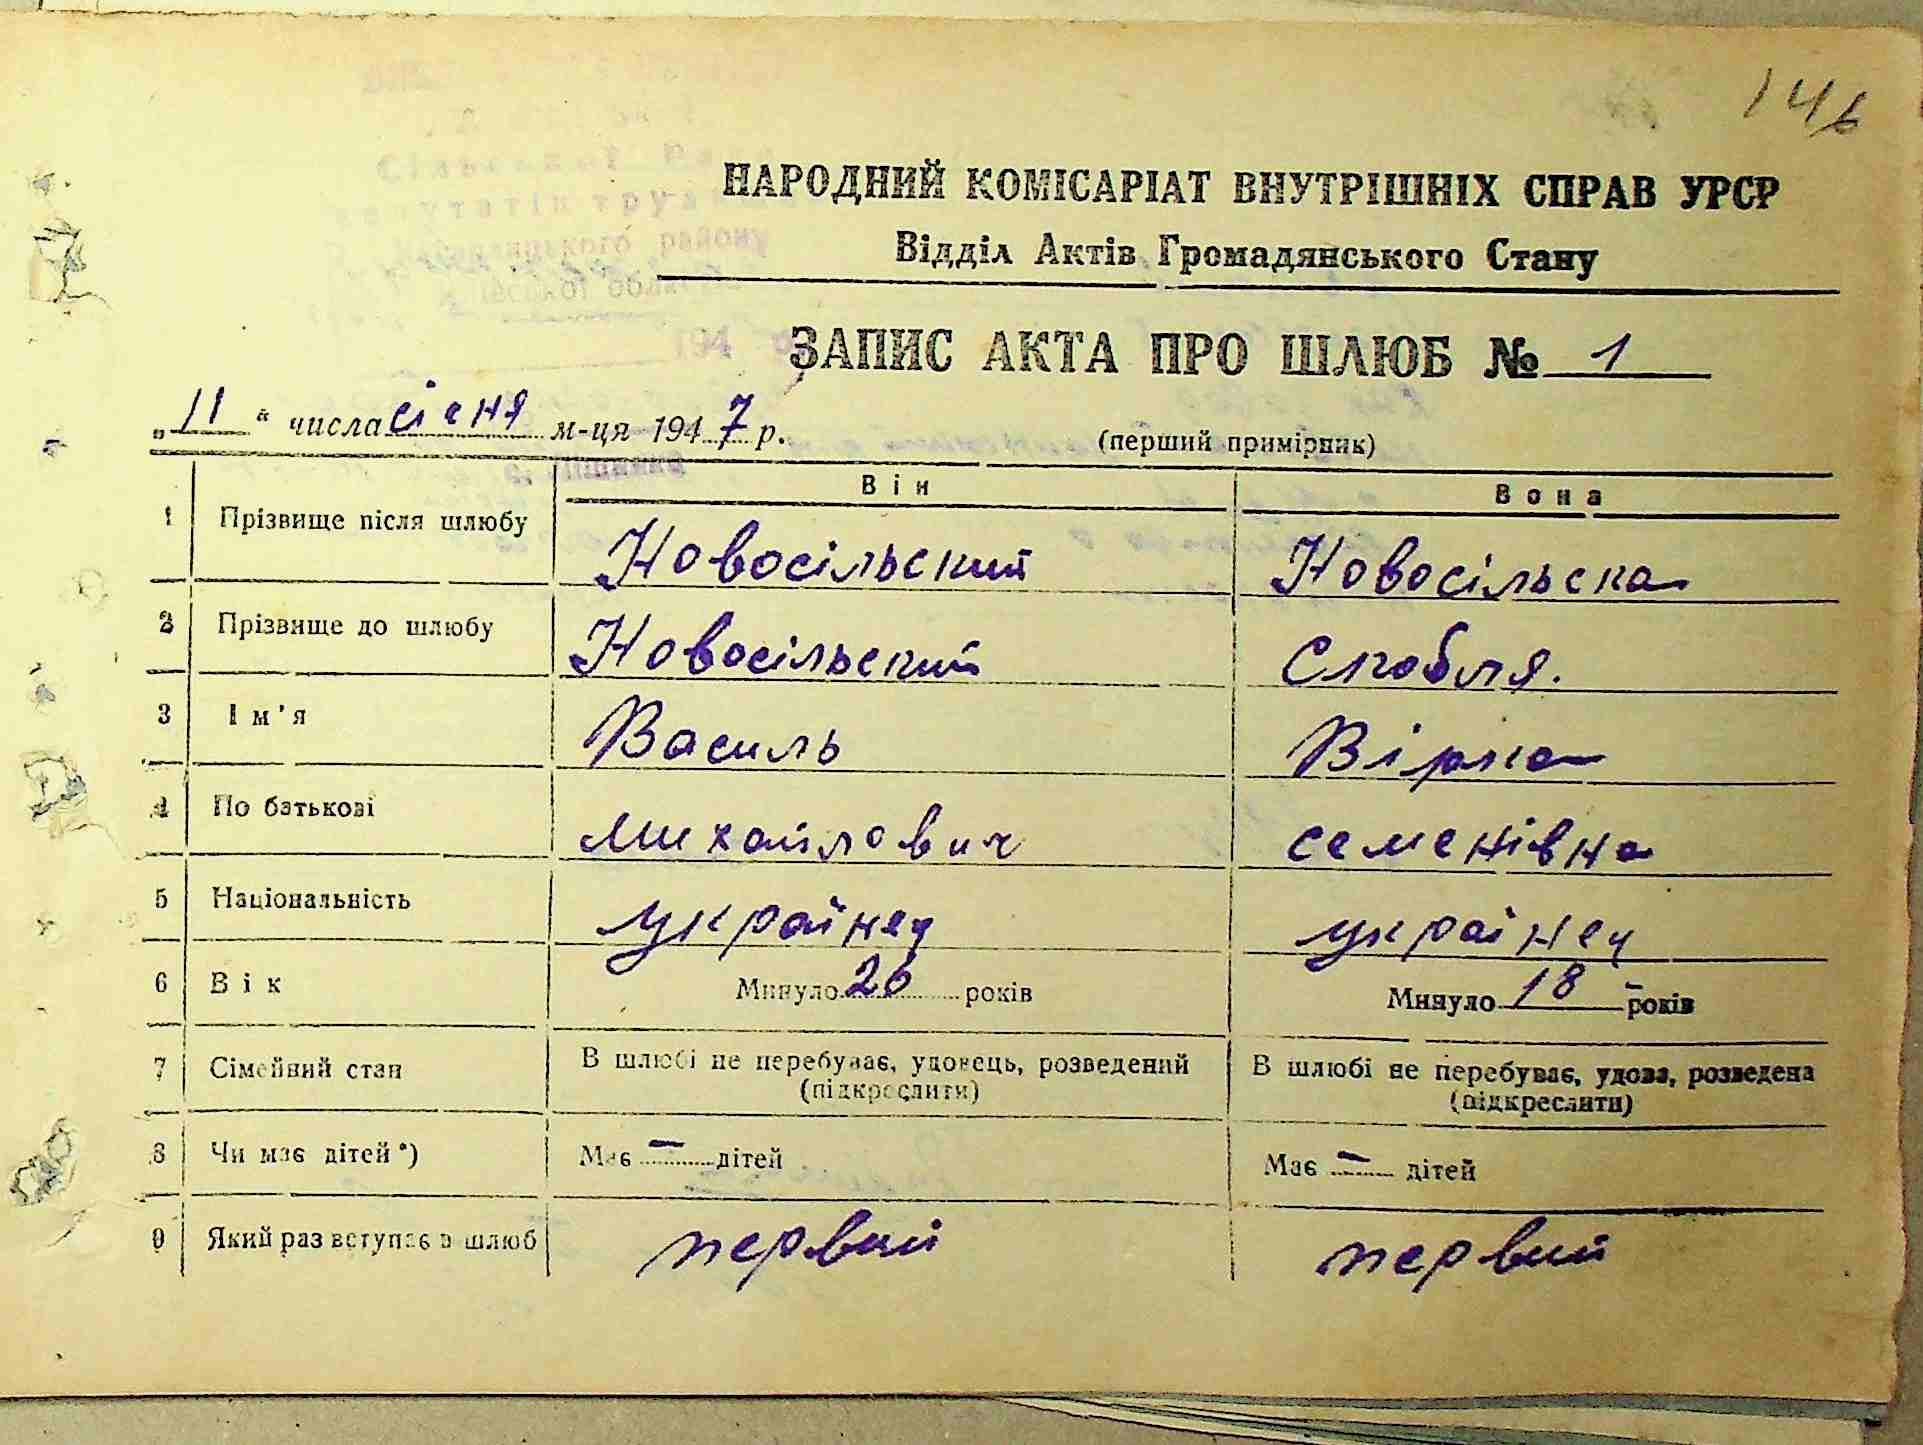 146
НАРОДНИЙ КОМІСАРІАТ ВНУТРІШНІХ СПРАВ УРСР
Відділ Актів Громадянського Стану
ЗАПИС АКТА ПРО ШЛЮБ № 1
„11“ числа січня м-ця 1947 р.
(перший примірник)
Він Вона
1 Прізвище після шлюбу Новосільский Новосільска
2 Прізвище до шлюбу Новосільский Скобля.
3 Ім'я Василь Вірка
4 По батькові Михайлович семенівна
5 Національність українец українец
6 Вік Минуло 26 років Минуло 18 років
7 Сімейний стан В шлюбі не перебуває, удовець, розведений (підкреслити) В шлюбі не перебуває, удова, розведена (підкреслити)
8 Чи має дітей*) Має – дітей Має – дітей
9 Який раз вступає в шлюб первий первий